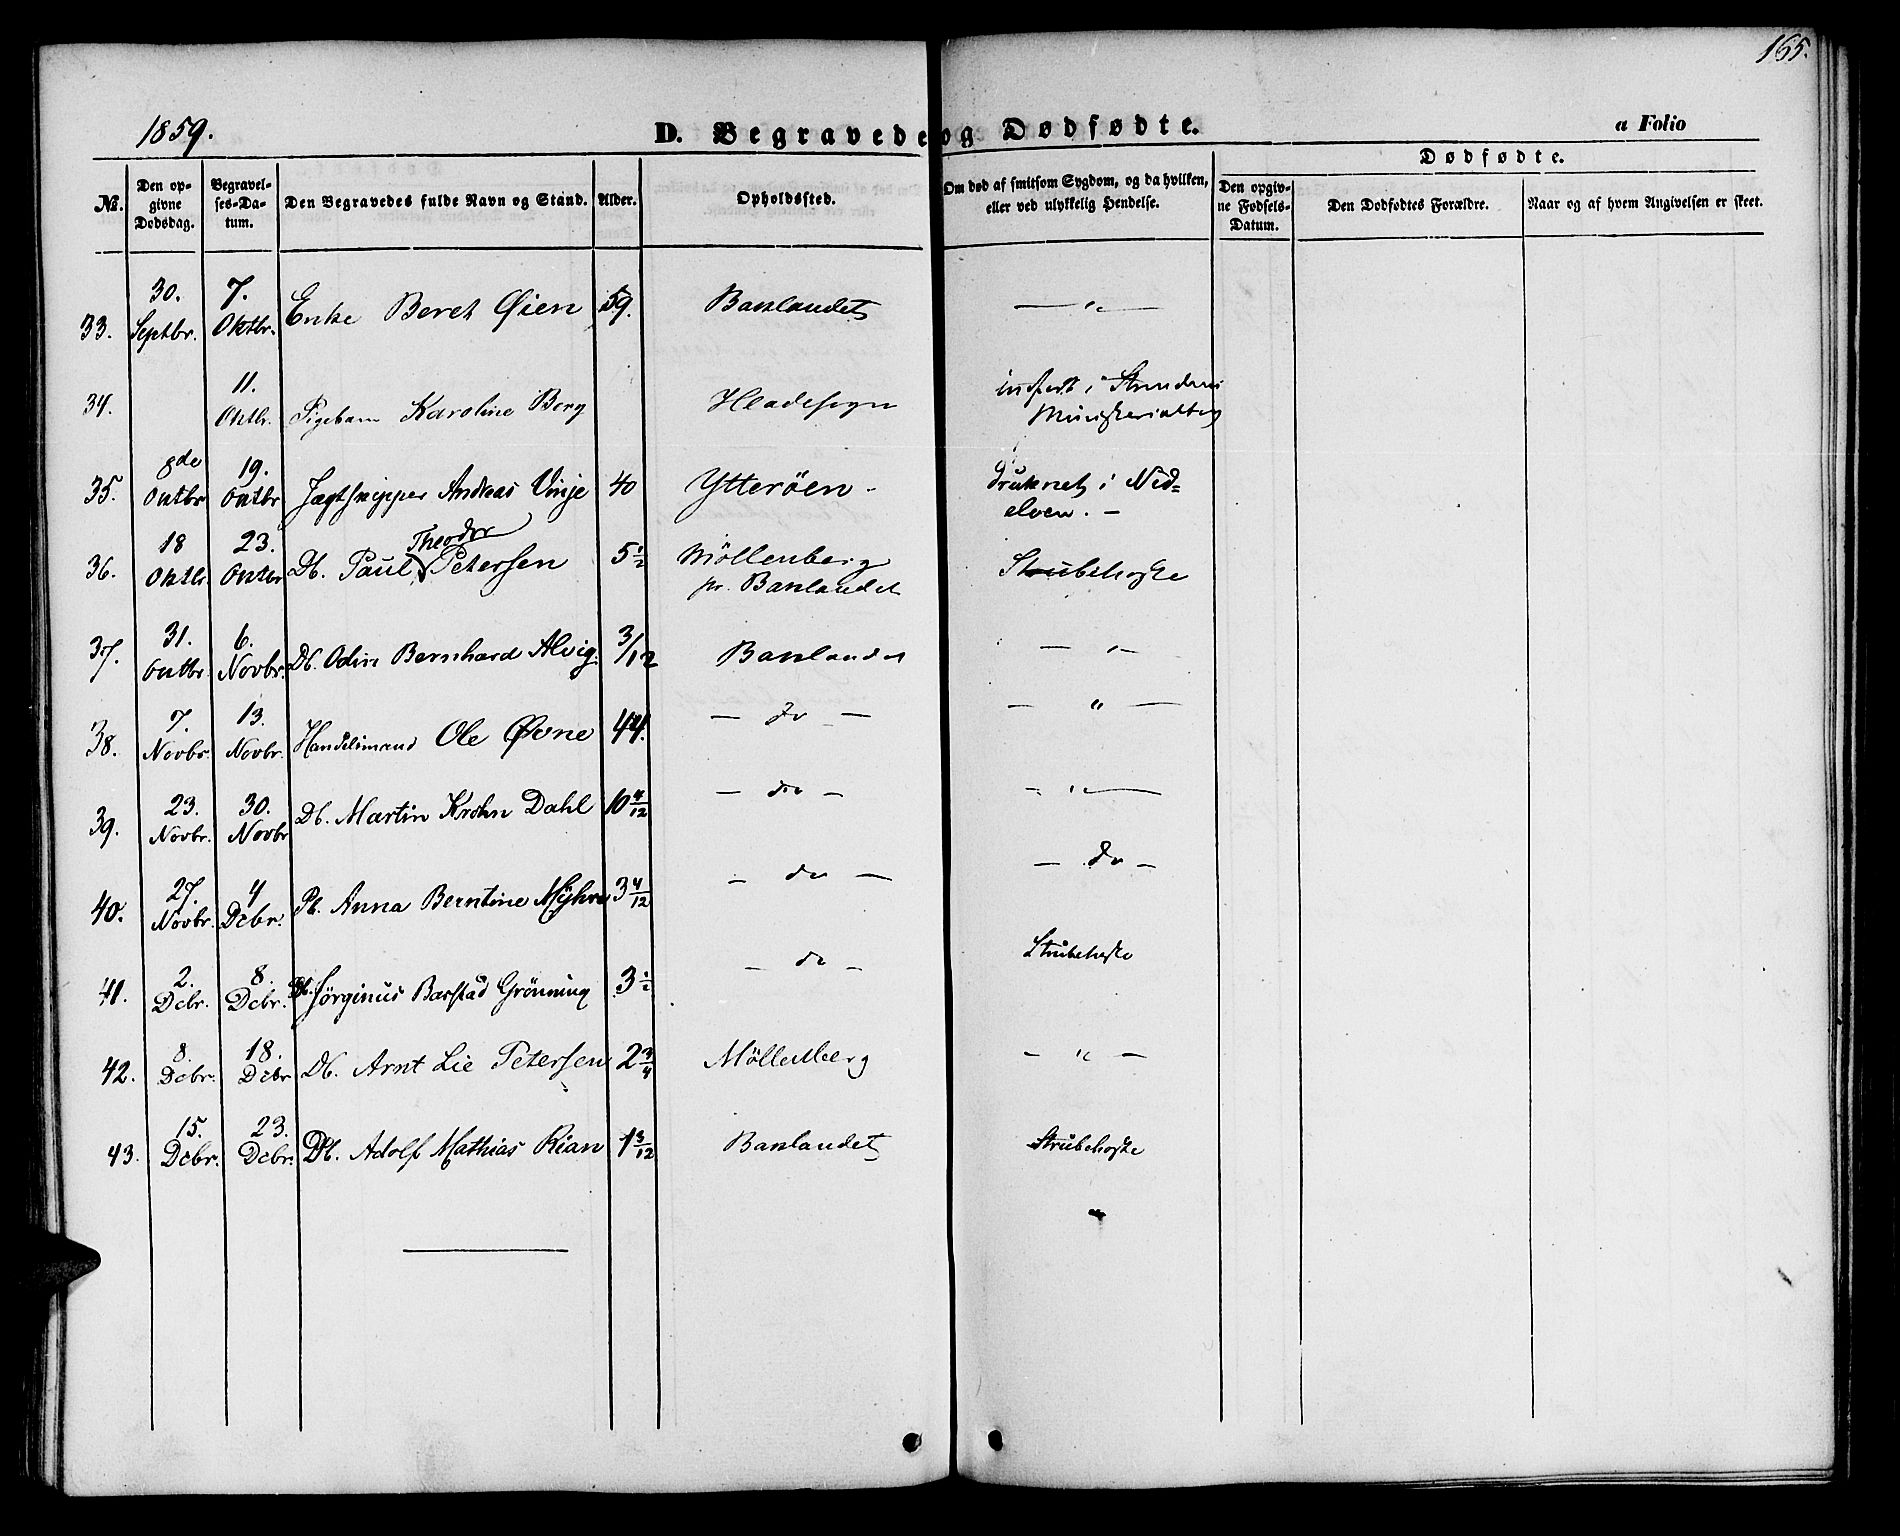 165.
1859. D. Begravede og Dødfødte. a Folio
№. Den opgivne Dødsdag. Begravelses-Datum. Den Begravedes fulde Navn og Stand. Alder. Opholdssted. Om død af smitsom Sygdom, og da hvilken, eller ved ulykkelig Hendelse. Den opgivne Fødsels-Datum. Dødfødte. Den Dødfødtes Forældre. Naar og af hvem Angivelsen er skeet.
33. 30. Septbr. 7. Oktbr. Enke Beret Øien 59. Baklandet — " —
34. 11. Oktbr. Pigebarn Karoline Berg Hladesogn indført i Strindens Ministerialbog
35. 8de Oktbr 19. Oktbr Jægtskipper Andreas Vinje 40 Ytterøen - druknet i Nid=
elven. -
36. 18 Oktbr 23. Oktbr Db. Paul Theodor Petersen 5 1/2 Möllenberg
pr. Baklandet Strubehoste
37. 31. Oktbr. 6. Novbr. Db. Odin Bernhard Alvig. 3/12 Baklandet — " —
38. 7. Novbr. 13. Novbr. Handelsmand Ole Øvne 44. — do — — " —
39. 23. Novbr. 30. Novbr Db. Martin Krohn Dahl 10 4/12 — do — — " —
40. 27. Novbr. 4 Dcbr. Pb. Anna Berntine Myhre 3 4/12 — do — — do —
41. 2. Dcbr. 8. Dcbr. Db. Jörginus Barstad Grönning 3 1/2 — do — Strubehoste
42. 8. Dcbr. 18. Dcbr Db. Arnt Lie Petersen 2 3/4 Möllenberg — " —
43. 15. Dcbr. 23. Dcbr. Db. Adolf Mathias Rian 1 3/12 Baklandet Strubehoste